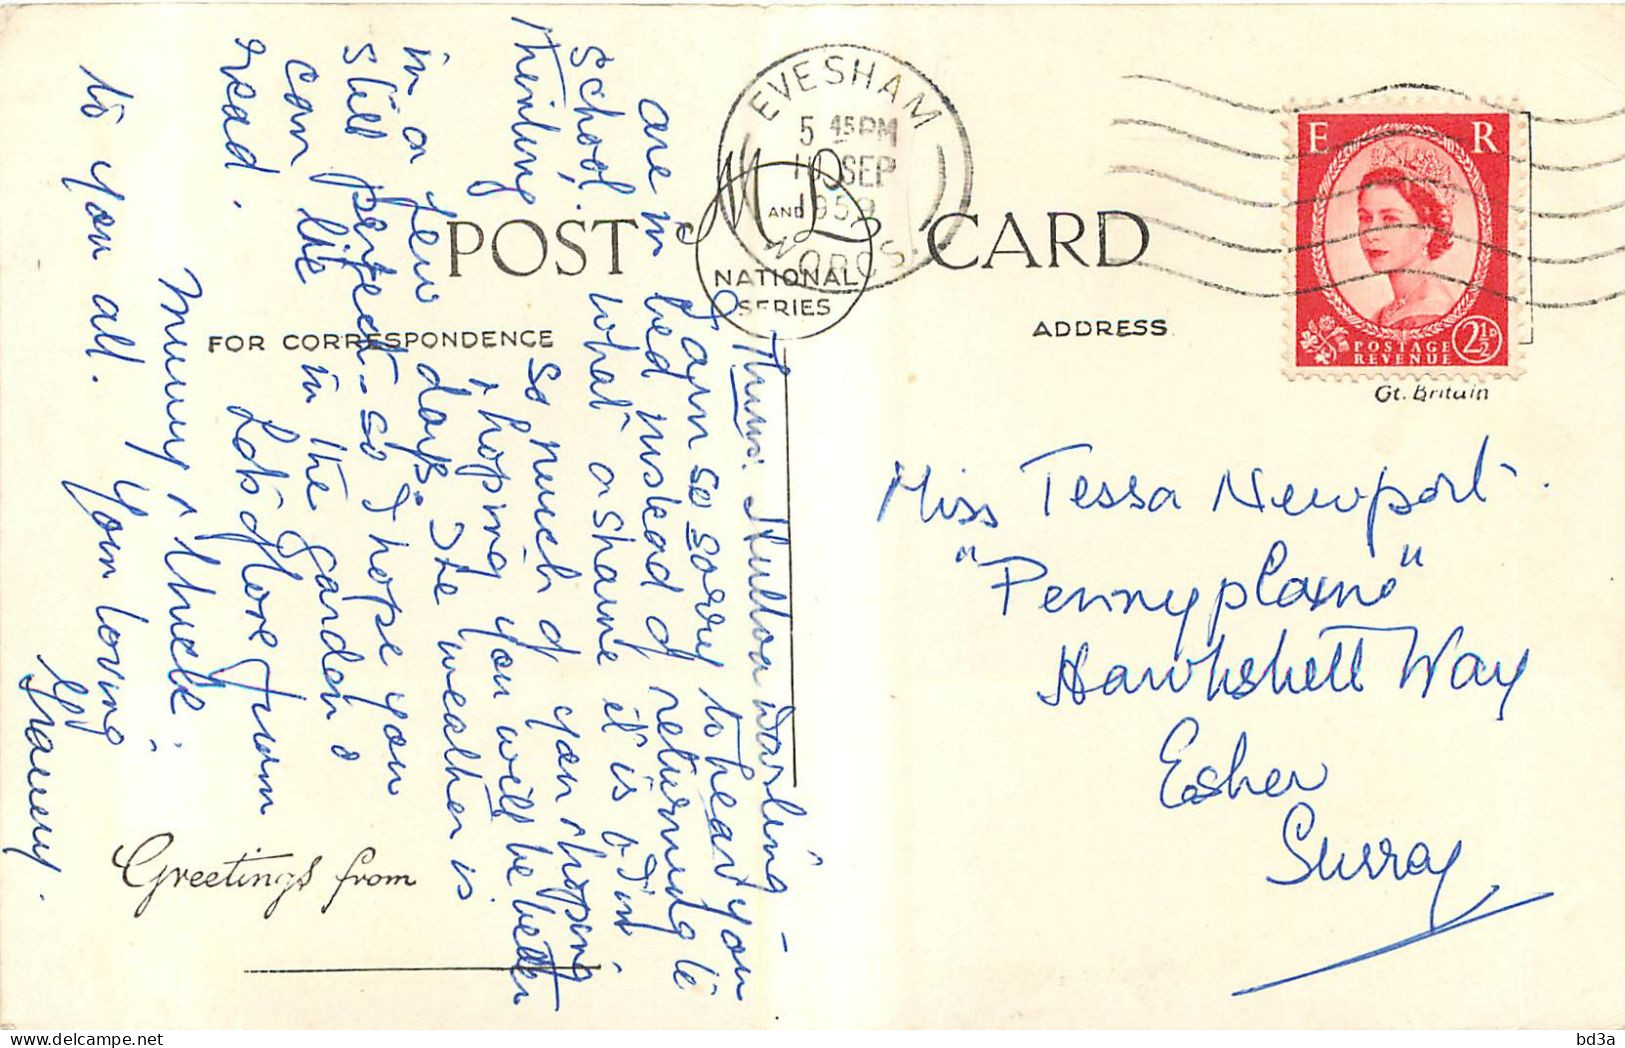 EVESHAM
5 45PM
10 SEP
1958
WORCS
E R
POSTAGE
REVENUE
2½D
POST CARD
M AND L
NATIONAL
SERIES
FOR CORRESPONDENCE
ADDRESS
Gt. Britain
Miss Tessa Newport.
"Pennyplain"
Hawkshett Way
Esher
Surrey
Darling -
I am so sorry to hear you
are in bed instead of returning to
school. What a shame it is & I'm
thinking so much of you & hoping
& hoping you will be better
in a few days. The weather is
still perfect - so I hope you
can lie in the garden &
read. Lots of love from
Mummy &
to you all. Your loving
Granny.
Greetings from
bd3a